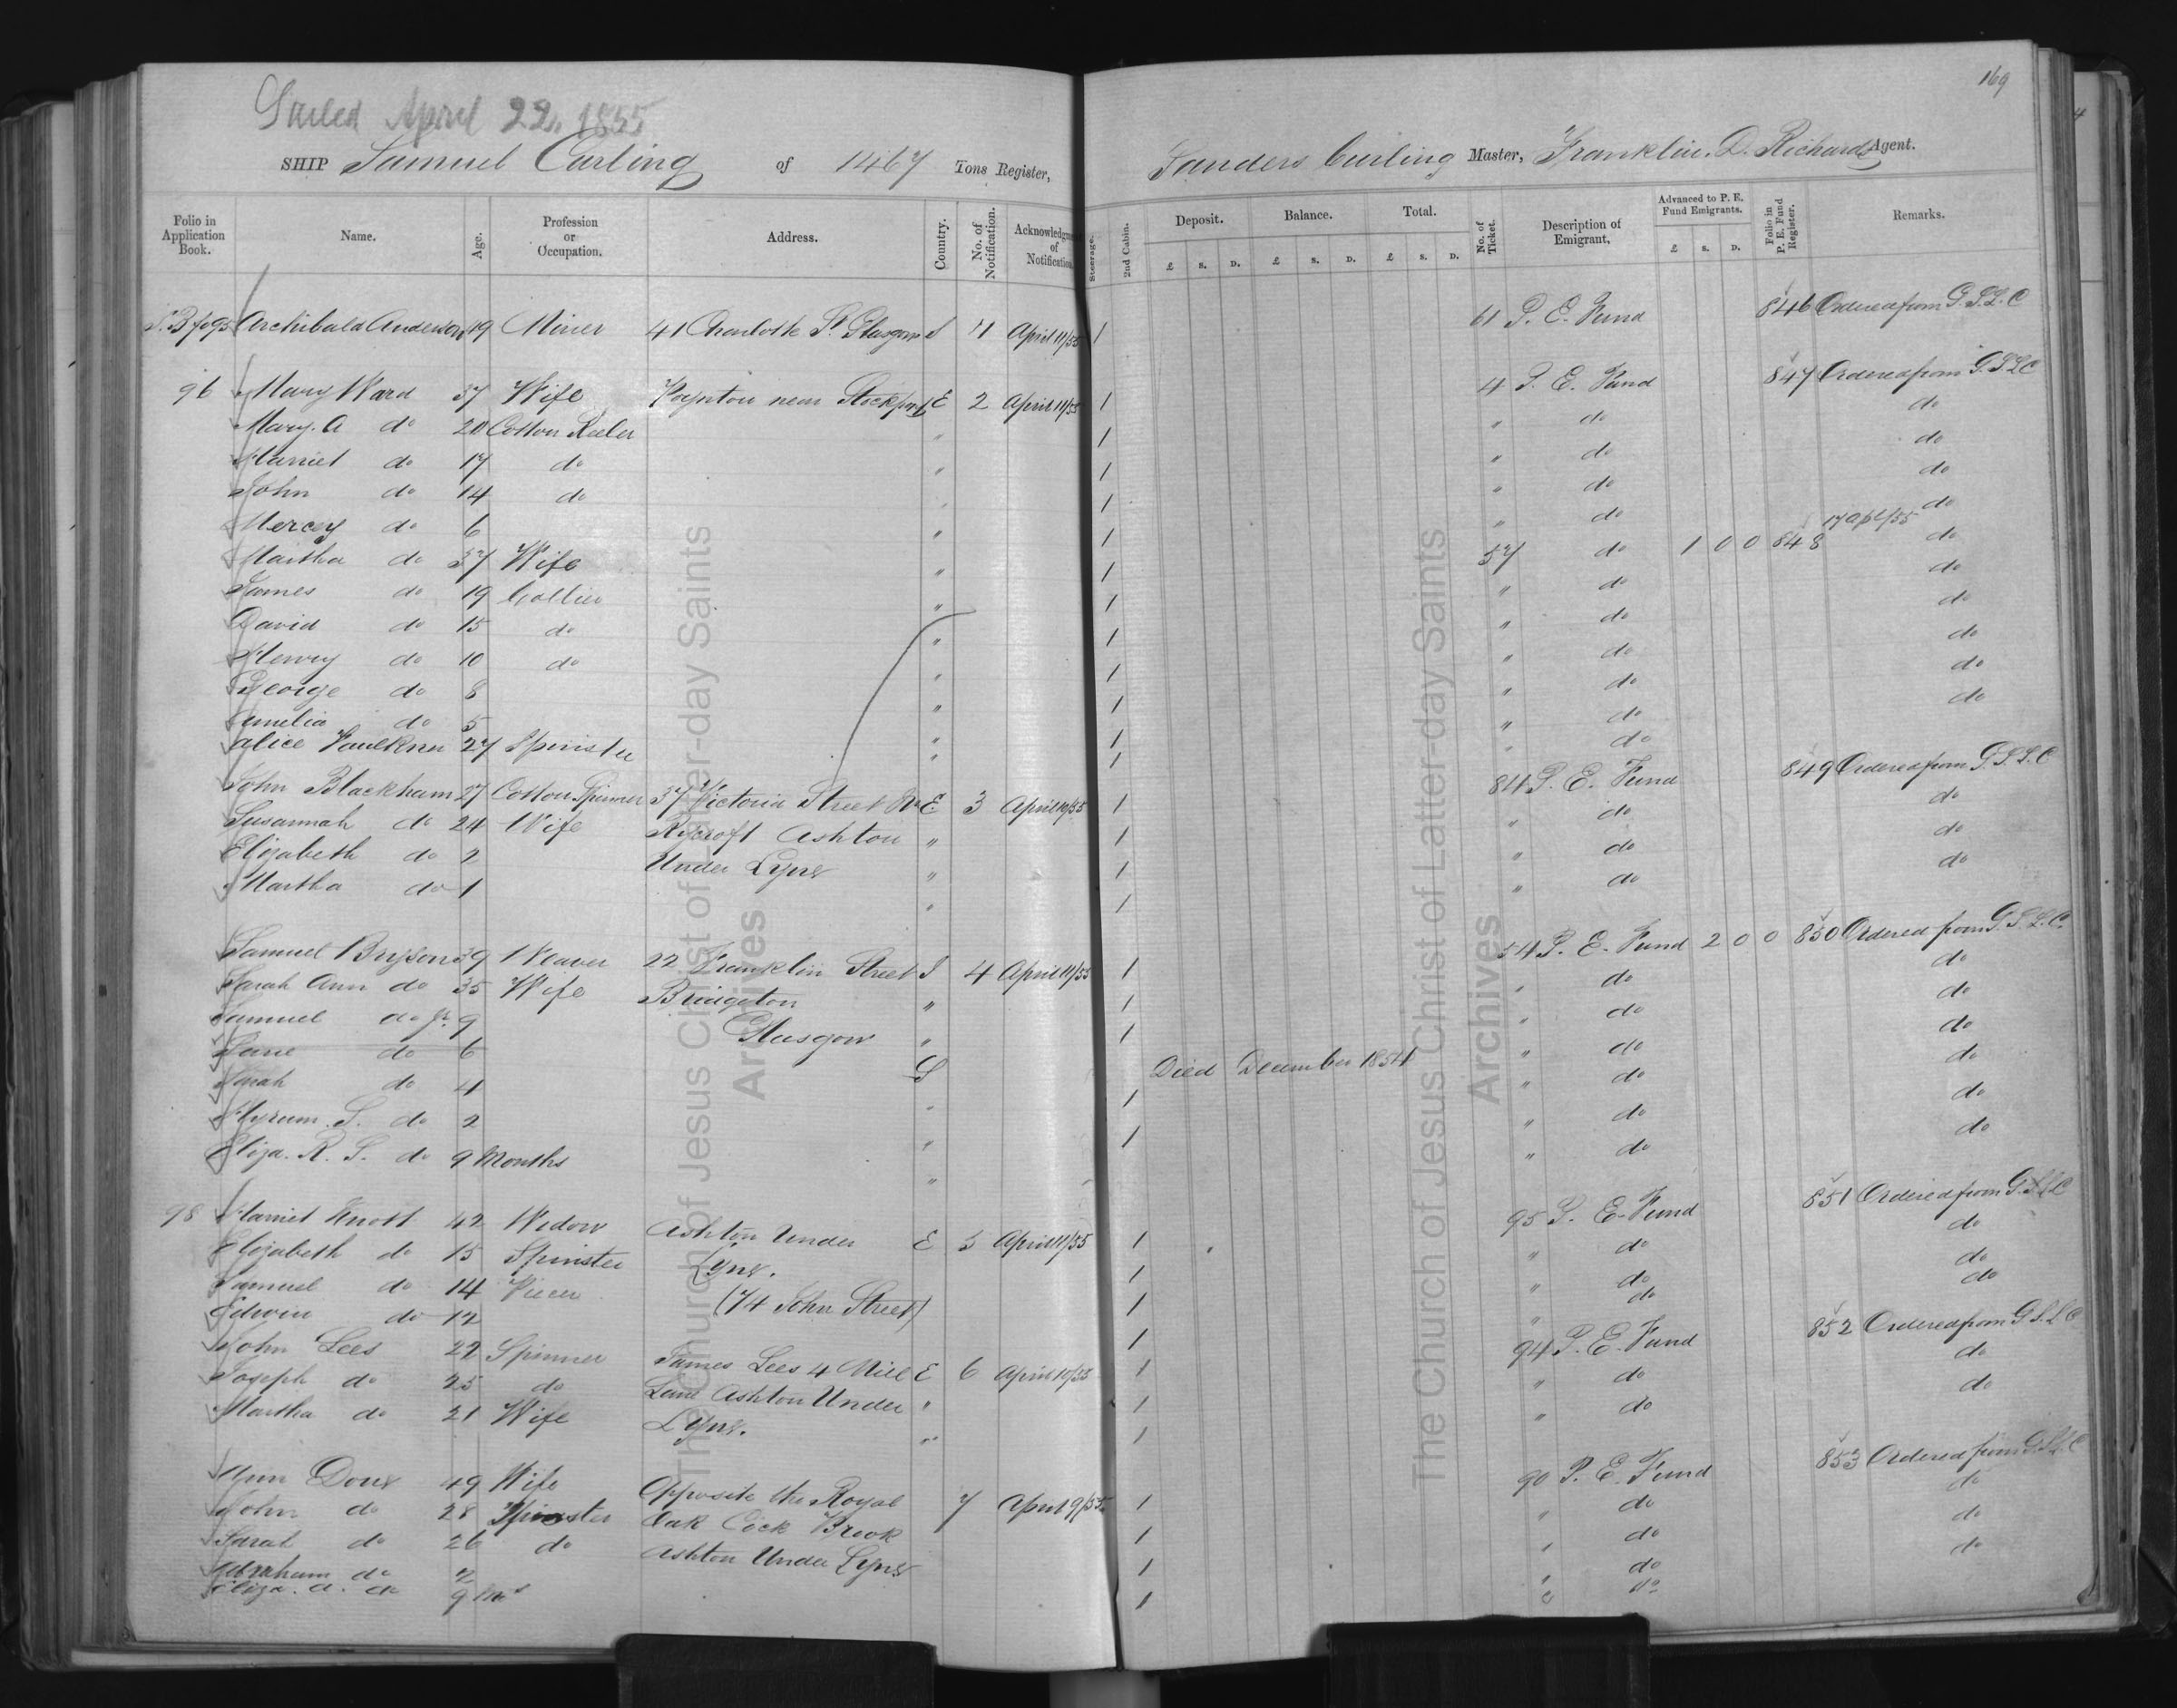 169
Sailed April 22, 1855
SHIP Samuel Curling of 1467 Tons Register, Sanders Curling Master, Franklin. D. Richards Agent.
Folio in Application Book. Name. Age. Profession or Occupation. Address. Country. No. of Notification. Acknowledgment of Notification. Steerage. 2nd Cabin. Deposit. Balance. Total. No. of Ticket. Description of Emigrant, Advanced to P. E. Fund Emigrants. Folio in P. E. Fund Register. Remarks.
£ S. D. £ S. D. £ S. D. £ S. D.
Archibald Anderson 49 Miner 41 Charlotte St. Glasgow S 1 April 11/55 1 61 P. E. Fund 846 Ordered from G. S. L. C
96 Mary Ward 37 Wife Poynton near Stockport E 2 April 11/55 1 4 P. E. Fund 847 Ordered from G. S L C
Mary. A do 20 Cotton Reeler " 1 " do do
Harriet do 17 do " 1 " do do
John do 14 do " 1 " do do
Mercey do 6 " 1 " do do
Martha do 37 Wife " 1 57 do 1 0 0 848 17 Apl/55 do
James do 19 Collier " 1 " do do
David do 15 do " 1 " do do
Henry do 10 do " 1 " do do
George do 8 " 1 " do do
Amelia do 5 " 1 " do do
Alice Faulkner 27 Spinster " 1 " do
John Blackham 27 Cotton Spinner 37 Victoria Street Nr E 3 April 10/55 1 84 P. E. Fund 849 Ordered from G. S. L. C
Susannah do 24 Wife Rycroft Ashton " 1 " do do
Elizabeth do 2 Under Lyne " 1 " do do
Martha do 1 " 1 " do do
Samuel Bryson 39 Weaver 22 Franklin Street S 4 April 11/55 1 54 P. E. Fund 2 0 0 850 Ordered from G. S L. C.
Sarah Ann do 35 Wife Bridgeton " 1 " do do
Samuel do Jr. 9 Glasgow " 1 " do do
Jane do 6 S Died December 1854 " do do
Sarah do 4 " 1 " do do
Hyrum. S. do 2 " 1 " do do
Eliza. R. S. do 9 Months " " do do
98 Harriet Knott 42 Widow Ashton Under E 5 April 11/55 1 95 P. E. Fund 851 Ordered from G. S L C
Elizabeth do 15 Spinster Lyne. 1 " do do
Samuel do 14 Piecer (74 John Street) 1 " do do
Edwin do 12 1 " do do
John Lees 22 Spinner James Lees 4 Mill E 6 April 10/55 1 94 P. E. Fund 852 Ordered from G S. L C
Joseph do 25 do Lane Ashton Under " 1 " do do
Martha do 21 Wife Lyne. " 1 " do do
Ann Done 49 Wife Opposite the Royal 7 April 9/55 1 90 P. E. Fund 853 Ordered from G. S L. C
John do 28 Spinster Oak Cock Brook 1 " do do
Sarah do 26 do Ashton Under Lyne 1 " do do
Abraham do 2 1 " do do
Eliza. A. do 9 Ms do
The Church of Jesus Christ of Latter-day Saints
Archives
The Church of Jesus Christ of Latter-day Saints
Archives